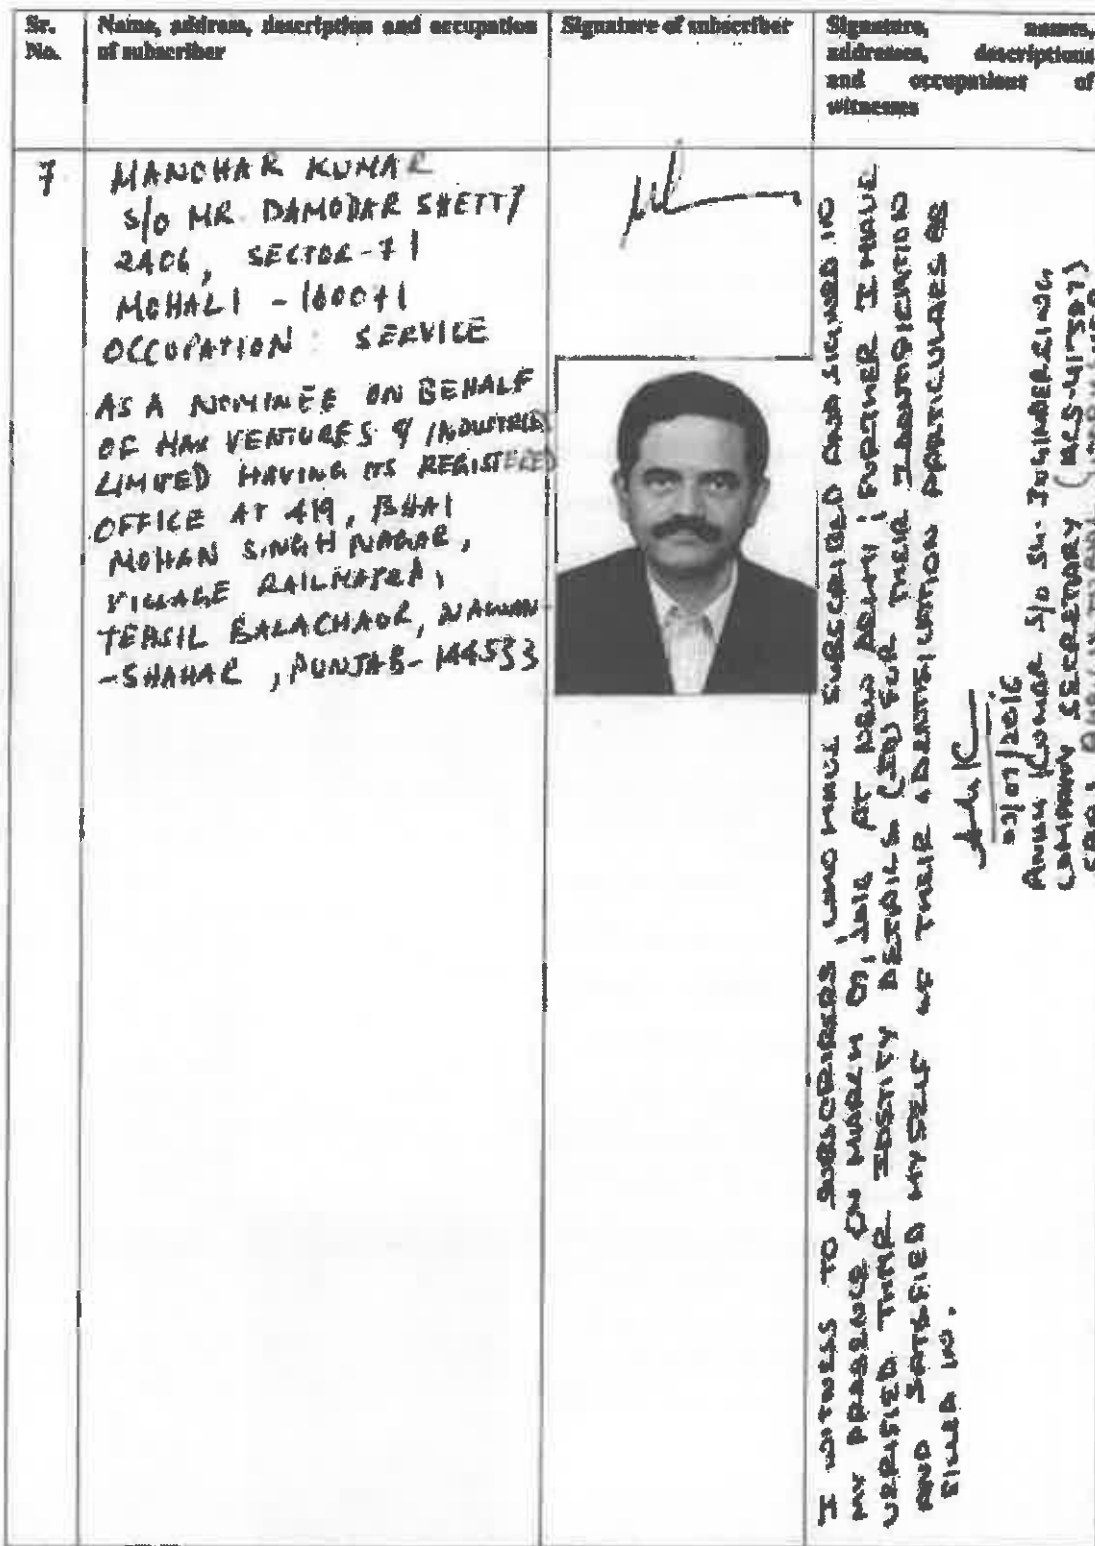 Sr. No.
Name, address, description and occupation of subscriber
Signature of subscriber
Signature, names, addresses, descriptions and occupations of witnesses
7
MANOHAR KUMAR
S/O MR. DAMODAR SHETTY
2406, SECTOR-71
MOHALI - 160071
OCCUPATION: SERVICE
AS A NOMINEE ON BEHALF
OF MAX VENTURES & INDUSTRIES
LIMITED HAVING ITS REGISTERED
OFFICE AT 419, BHAI
MOHAN SINGH NAGAR,
VILLAGE RAILMAJRA,
TEHSIL BALACHAUR, NAWAN
-SHAHAR, PUNJAB-144533
I WITNESS TO SUBSCRIBERS, WHO HAVE SUBSCRIBED AND SIGNED IN
MY PRESENCE ON MARCH 07, 2016 AT NEW DELHI; FURTHER I HAVE
VERIFIED THEIR IDENTITY DETAILS (ID) FOR THEIR IDENTIFICATION
AND SATISFIED MYSELF OF THEIR IDENTIFICATION PARTICULARS AS
FILLED IN.
KUMAR S/O SH.
COMPANY SECRETARY